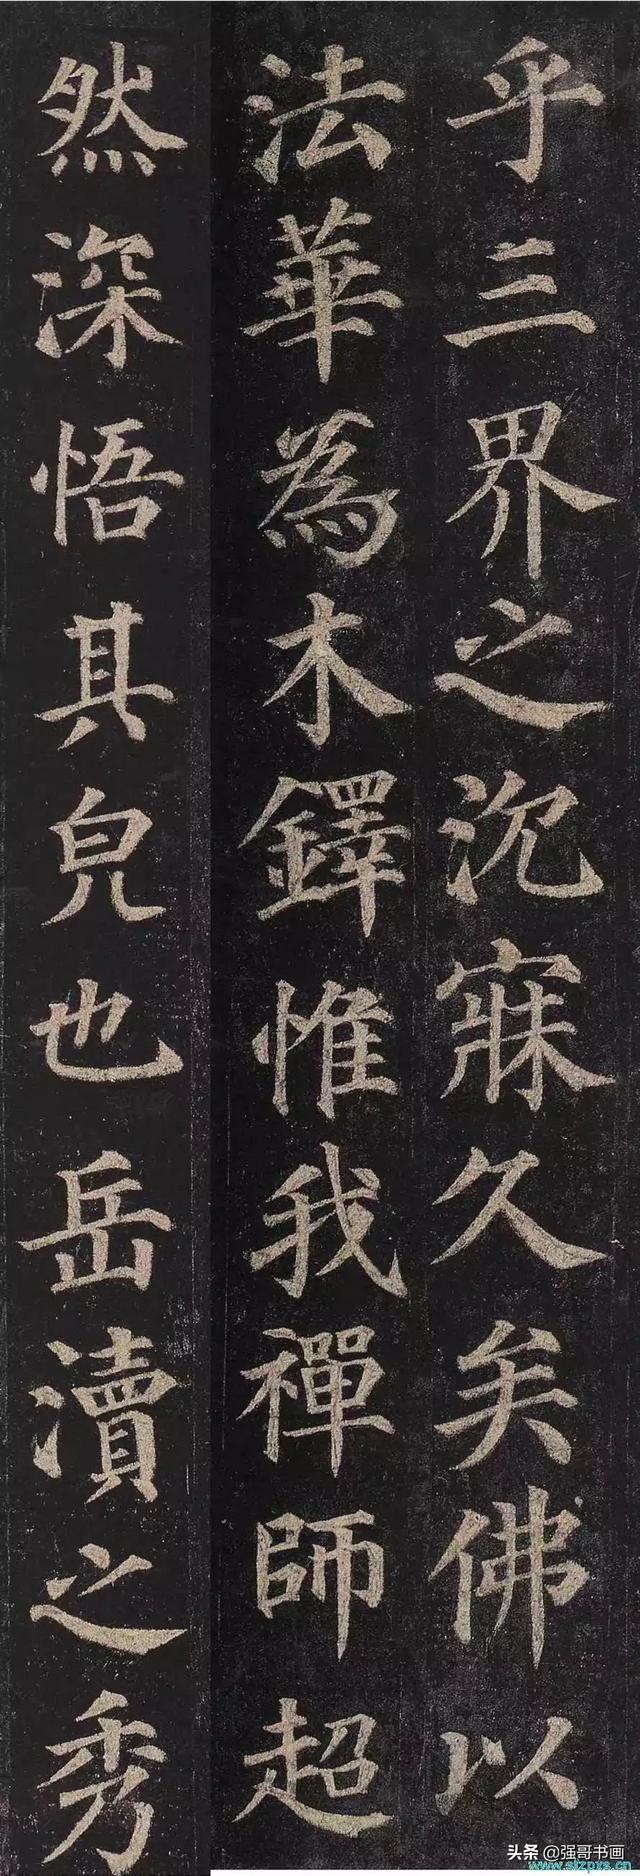 乎三界之沉寐久矣佛以
法華為木鐸惟我禪師超
然深悟其皃也岳瀆之秀
头条@强哥书画
www.skzpxs.cn